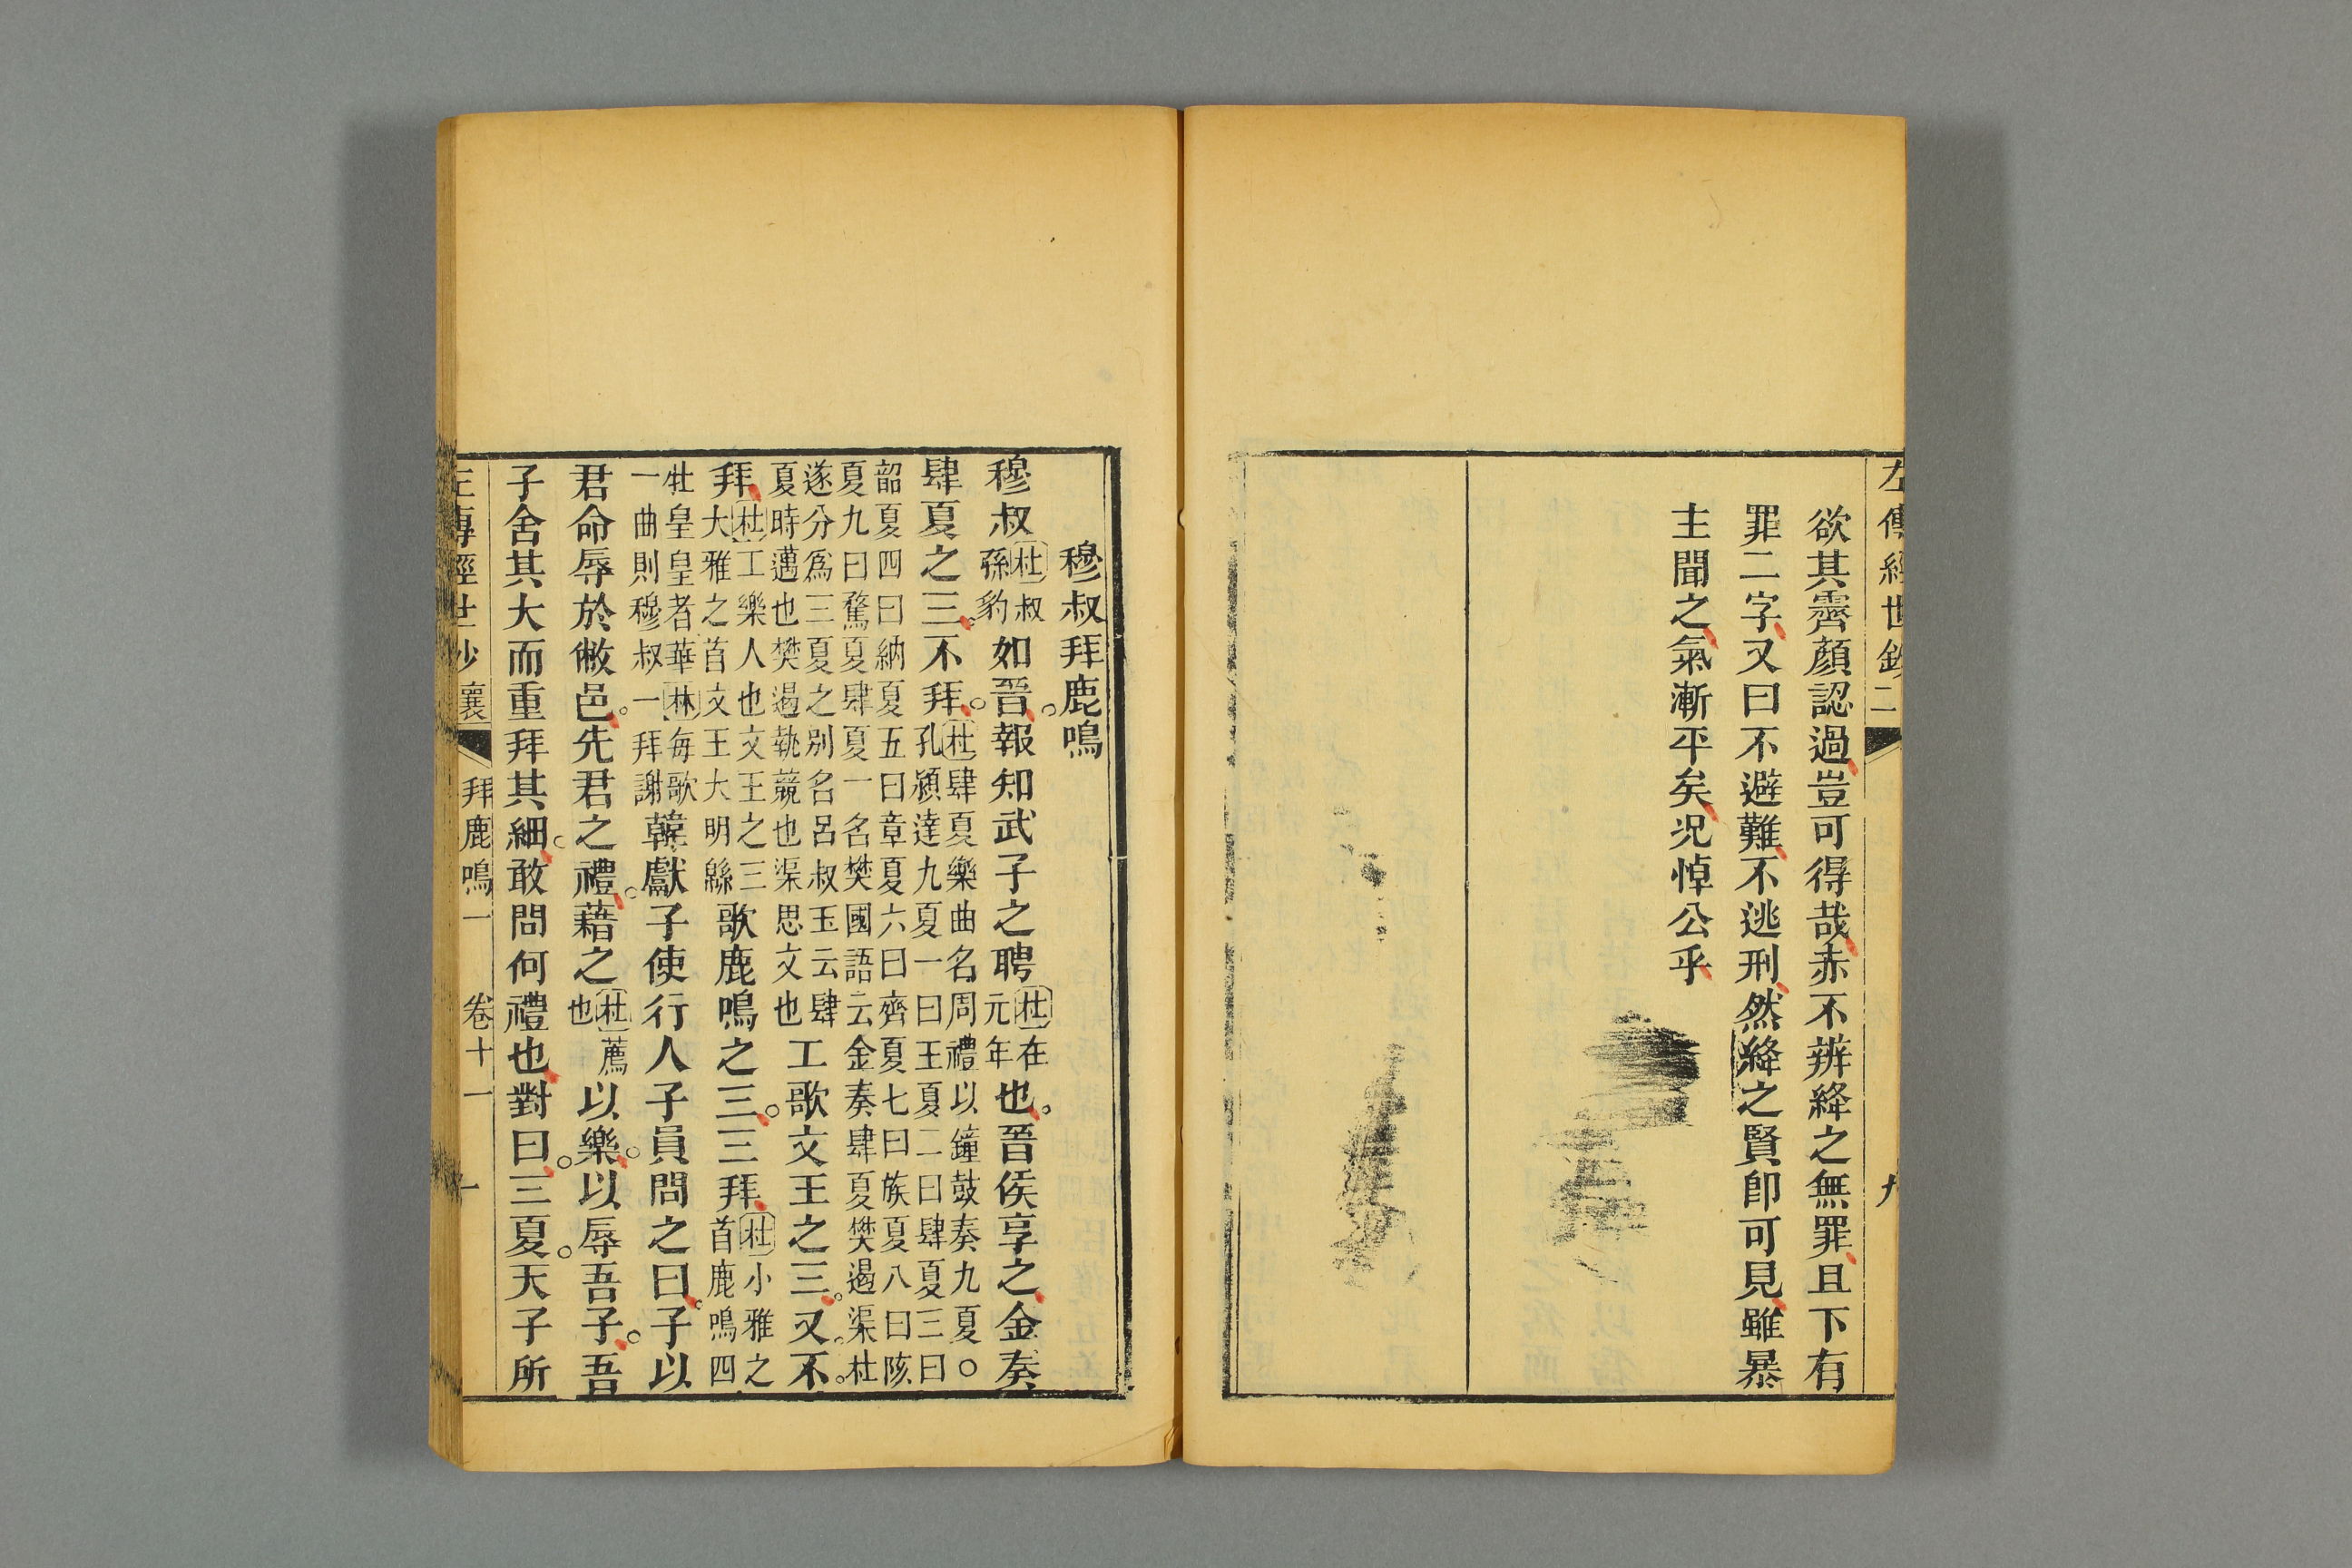 左傳經世鈔二
九
欲其霽顏認過豈可得哉赤不辨絳之無罪且下有
罪二字又曰不避難不逃刑然絳之賢即可見雖暴
主聞之氣漸平矣况悼公乎
穆叔拜鹿鳴
穆叔杜叔孫豹如晉報知武子之聘杜在元年也晉侯享之金奏
肆夏之三不拜杜肆夏樂曲名周禮以鐘鼓奏九夏○孔穎達九夏一曰王夏二曰肆夏三曰
韶夏四曰納夏五曰章夏六曰齊夏七曰族夏八曰陔夏九曰驁夏肆夏一名樊國語云金奏肆夏樊遏渠杜
遂分爲三夏之別名呂叔玉云肆夏時邁也樊遏執競也渠思文也工歌文王之三又不
拜杜工樂人也文王之三大雅之首文王大明緜歌鹿鳴之三三拜杜小雅之首鹿鳴四
牡皇皇者華林每歌一曲則穆叔一拜謝韓獻子使行人子員問之曰子以
君命辱於敝邑先君之禮藉之杜薦也以樂以辱吾子吾
子舍其大而重拜其細敢問何禮也對曰三夏天子所
左傳經世鈔襄 拜鹿鳴一 卷十一 一